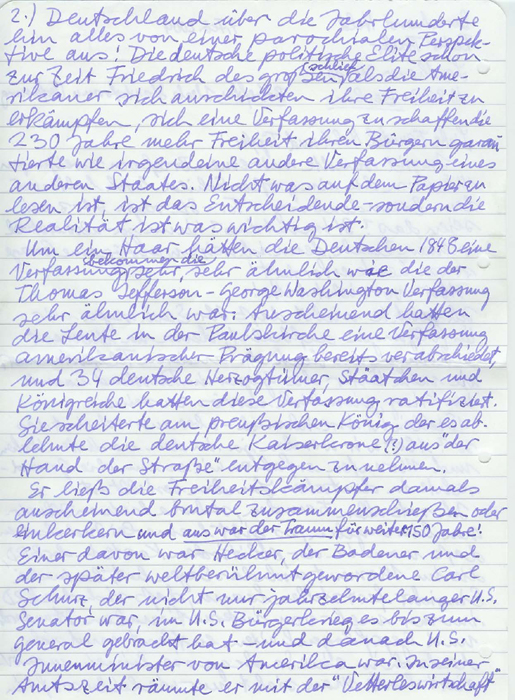 2.) Deutschland über die Jahrhunderte
hin alles von einer parochialen Perspek-
tive aus! Die deutsche politische Elite schon
zur Zeit Friedrich des großen schlief als die Ame-
rikaner sich anschickten ihre Freiheit zu
erkämpfen, sich eine Verfassung zu schaffen die
230 Jahre mehr Freiheit ihren Bürgern garan
tierte wie irgendeine andere Verfassung eines
anderen Staates. Nicht was auf dem Papier zu
lesen ist, ist das Entscheidende - sondern die
Realität ist was wichtig ist.
Um ein Haar hätten die Deutschen 1848 eine
Verfassung bekommen die sehr, sehr ähnlich wie die der
Thomas Jefferson - George Washington Verfassung
sehr ähnlich war. Anscheinend hatten
die Leute in der Paulskirche eine Verfassung
amerikanischer Prägung bereits verabschiedet,
und 34 deutsche Herzogtümer, Stäatchen und
Königreiche hatten diese Verfassung ratifiziert.
Sie scheiterte am preußischen König, der es ab-
lehnte die deutsche Kaiserkrone (!) aus "der
Hand der Straße" entgegen zu nehmen.
Er ließ die Freiheitskämpfer damals
anscheinend brutal zusammenschießen oder
einkerkern und aus war der Traum für weitere 150 Jahre!
Einer davon war Hecker, der Badener und
der später weltberühmt gewordene Carl
Schurz, der nicht nur jahrzehntelanger U.S.
Senator war, im U.S. Bürgerkrieg es bis zum
General gebracht hat - und danach U.S.
Innenminister von Amerika war. In seiner
Amtszeit räumte er mit der "Vetterleswirtschaft"